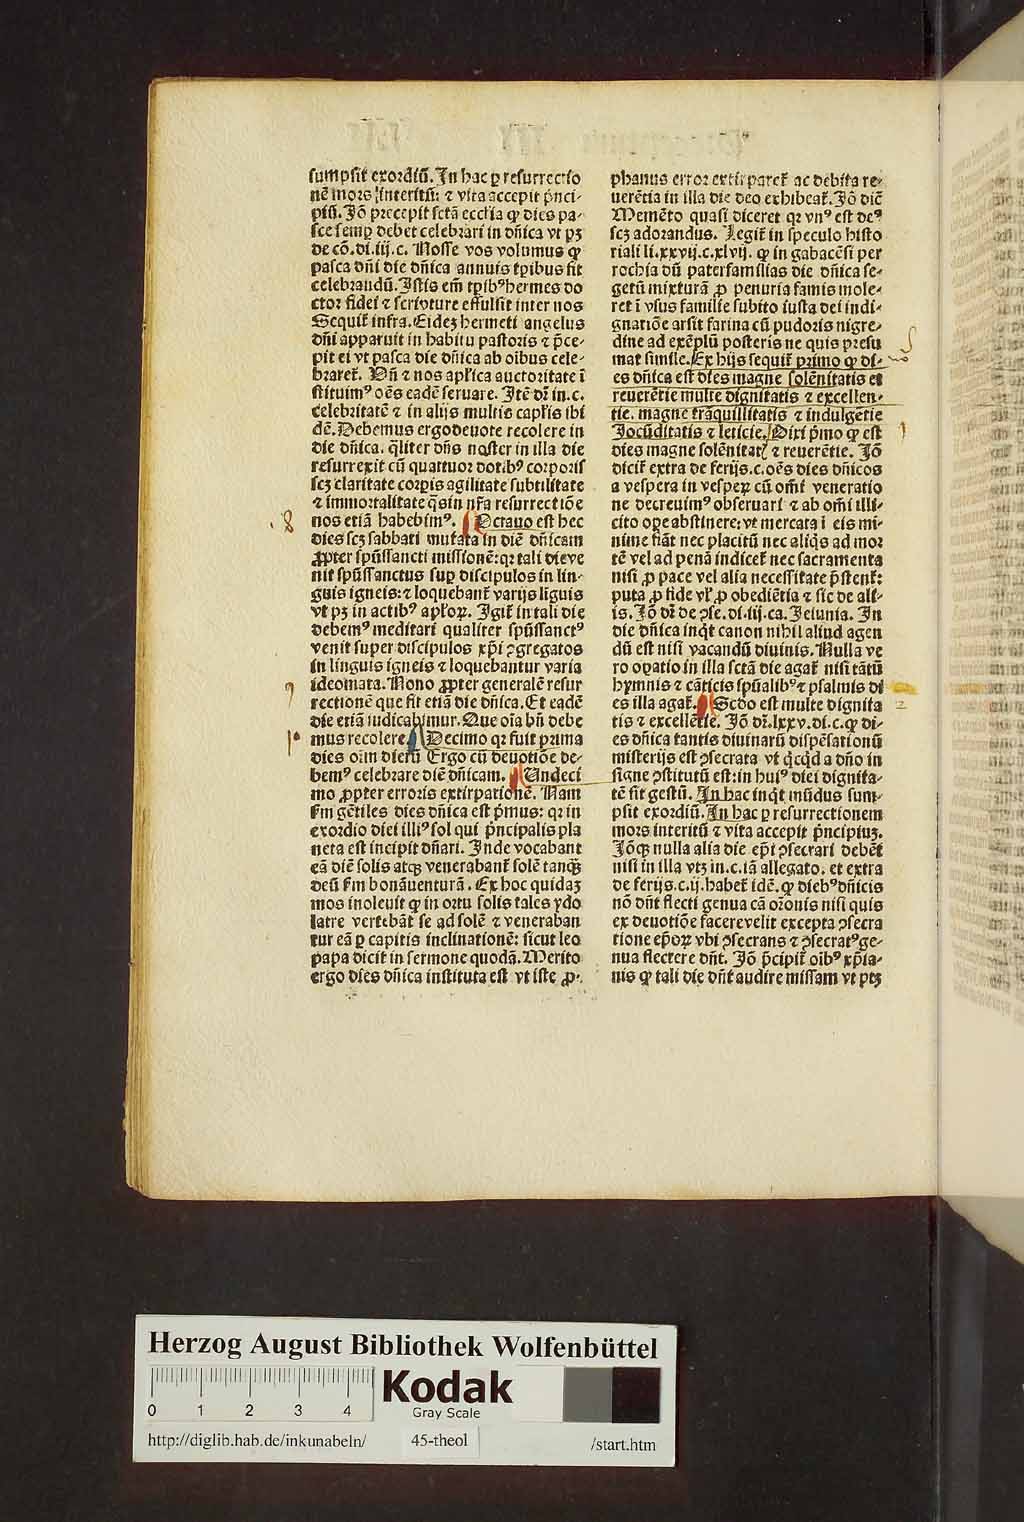 sumpsit exordiū. In hac ꝑ resurrectio
nē mors interitū: ⁊ vita accepit p̄nci-
piū. Iō precepit sctā ecclīa ꝙ dies pa-
sce semꝑ debet celebrari in dn̄ica vt pꝫ
de cō. di. iij. c. Nosse vos volumus ꝙ
pasca dn̄i die dn̄ica annuis tꝑibus sit
celebrandū. Istis em̄ tꝑibꝰ hermes do
ctor fidei ⁊ scripture effulsit inter nos
Sequit̄ infra. Eideꝫ hermeti angelus
dn̄i apparuit in habitu pastoris ⁊ p̄ce-
pit ei vt pasca die dn̄ica ab oibus cele-
braret̄. Dn̄ ⁊ nos apl̄ica auctoritate ī
stituimꝰ oēs eadē seruare. Itē dr̄ in. c.
celebritatē ⁊ in alijs multis capl̄is ibi
dē. Debemus ergo deuote recolere in
die dn̄ica. qͥliter dn̄s noster in illa die
resurrexit cū quattuor dotibꝰ corporis
scꝫ claritate corpis agilitate subtilitate
⁊ immortalitate q̄s in nr̄a resurrectiōe
nos etiā habebimꝰ. Octauo est hec
dies scꝫ sabbati mutata in diē dn̄icam
ꝓpter spūssancti missionē: qꝛ tali die ve
nit spūssanctus suꝑ discipulos in lin-
guis igneis: ⁊ loquebant̄ varijs liguis
vt pꝫ in actibꝰ apl̄oꝝ. Igit̄ in tali die
debemꝰ meditari qualiter spūssanctꝰ
venit super discipulos xp̄i ꝯgregatos
in linguis igneis ⁊ loquebantur varia
ideomata. Nono ꝓpter generalē resur
rectionē que fit etiā die dn̄ica. Et eadē
die etiā iudicabimur. Que oīa bn̄ debe
mus recolere. Decimo qꝛ fuit prima
dies oīm dierū Ergo cū deuotiōe de-
bemꝰ celebrare diē dn̄icam. Undeci
mo ꝓpter erroris extirpationē. Nam
ẜm gētiles dies dn̄ica est p̄mus: qꝛ in
exordio diei illiꝰ sol qui p̄ncipalis pla
neta est incipit dn̄ari. Inde vocabant
eā diē solis atqꝫ venerabant̄ solē tanqꝫ
deū ẜm bonāuenturā. Ex hoc quidaꝫ
mos inoleuit ꝙ in ortu solis tales ydo
latre vertebāt se ad solē ⁊ veneraban
tur eā ꝑ capitis inclinationē: sicut leo
papa dicit in sermone quodā. Merito
ergo dies dn̄ica instituta est vt iste ꝓ-
phanus error extirparet̄ ac debita re-
uerētia in illa die deo exhibeat̄. Iō diē
Memēto quasi diceret qꝛ vnꝰ est deꝰ
scꝫ adorandus. Legit̄ in speculo histo
riali li. xxvij. c. xlvij. ꝙ in gabacēsi per
rochia dū paterfamilias die dn̄ica se-
getū mixturā ꝓ penuria famis mole-
ret ī vsus familie subito iusta dei indi-
gnatiōe arsit farina cū pudoris nigre-
dine ad exēplū posteris ne quis presu
mat simile. Ex hijs sequit̄ primo ꝙ di-
es dn̄ica est dies magne solēnitatis et
reuerētie multe dignitatis ⁊ excellen-
tie. magne trāquillitatis ⁊ indulgētie
Iocūditatis ⁊ leticie. Dixi p̄mo ꝙ est
dies magne solēnitatꝭ ⁊ reuerētie. Iō
dicit̄ extra de ferijs. c. oēs dies dn̄icos
a vespera in vesperꝫ cū om̄i veneratio
ne decreuimꝰ obseruari ⁊ ab om̄i illi-
cito ope abstinere: vt mercata ī eis mi-
nime fiāt nec placitū nec aliq̄s ad mor
tē vel ad penā indicet̄ nec sacramenta
nisi ꝓ pace vel alia necessitate p̄stent̄:
puta ꝓ fide vl̄ ꝓ obediētia ⁊ sic de ali-
is. Iō dr̄ de ꝯse. di. iij. ca. Ieiunia. In
die dn̄ica inqͥt canon nihil aliud agen
dū est nisi vacandū diuinis. Nulla ve
ro opatio in illa sctā die agat̄ nisi tātū
hymnis ⁊ cāticis spūalibꝰ ⁊ psalmis di
es illa agat̄. Scd̄o est multe dignita
tis ⁊ excellētie. Iō dr̄. lxxv. di. c. ꝙ di-
es dn̄ica tantis diuinarū dispēsationū
misterijs est ꝯsecrata vt qͥcqͥd a dn̄o in
signe ꝯstitutū est: in huiꝰ diei dignita-
tē sit gestū. In hac inqͥt mūdus sum-
psit exordiū. In hac ꝑ resurrectionem
mors interitū ⁊ vita accepit p̄ncipiuꝫ.
Iōqꝫ nulla alia die ep̄i ꝯsecrari debēt
nisi in illa vtꝫ in. c. iā allegato. et extra
de ferijs. c. ij. habet̄ idē. ꝙ diebꝰ dn̄icis
nō dn̄t flecti genua cā or̄onis nisi quis
ex deuotiōe facere velit excepta ꝯsecra
tione ep̄oꝝ vbi ꝯsecrans ⁊ ꝯsecratꝰ ge-
nua flectere dn̄t. Iō p̄cipit̄ oibꝰ xp̄ia-
nis ꝙ tali die dn̄t audire missam vt ptꝫ
Herzog August Bibliothek Wolfenbüttel
0 1 2 3 4
Kodak
Gray Scale
http://diglib.hab.de/inkunabeln/
45-theol
/start.htm